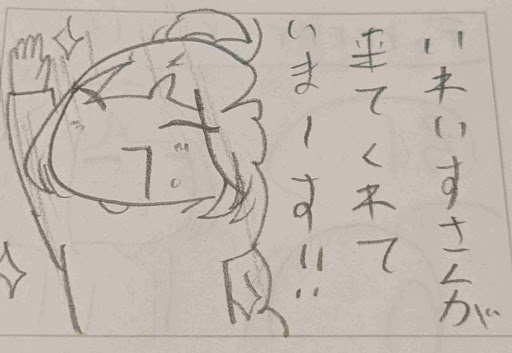 いれいすさんが
来てくれて
いまーす!!